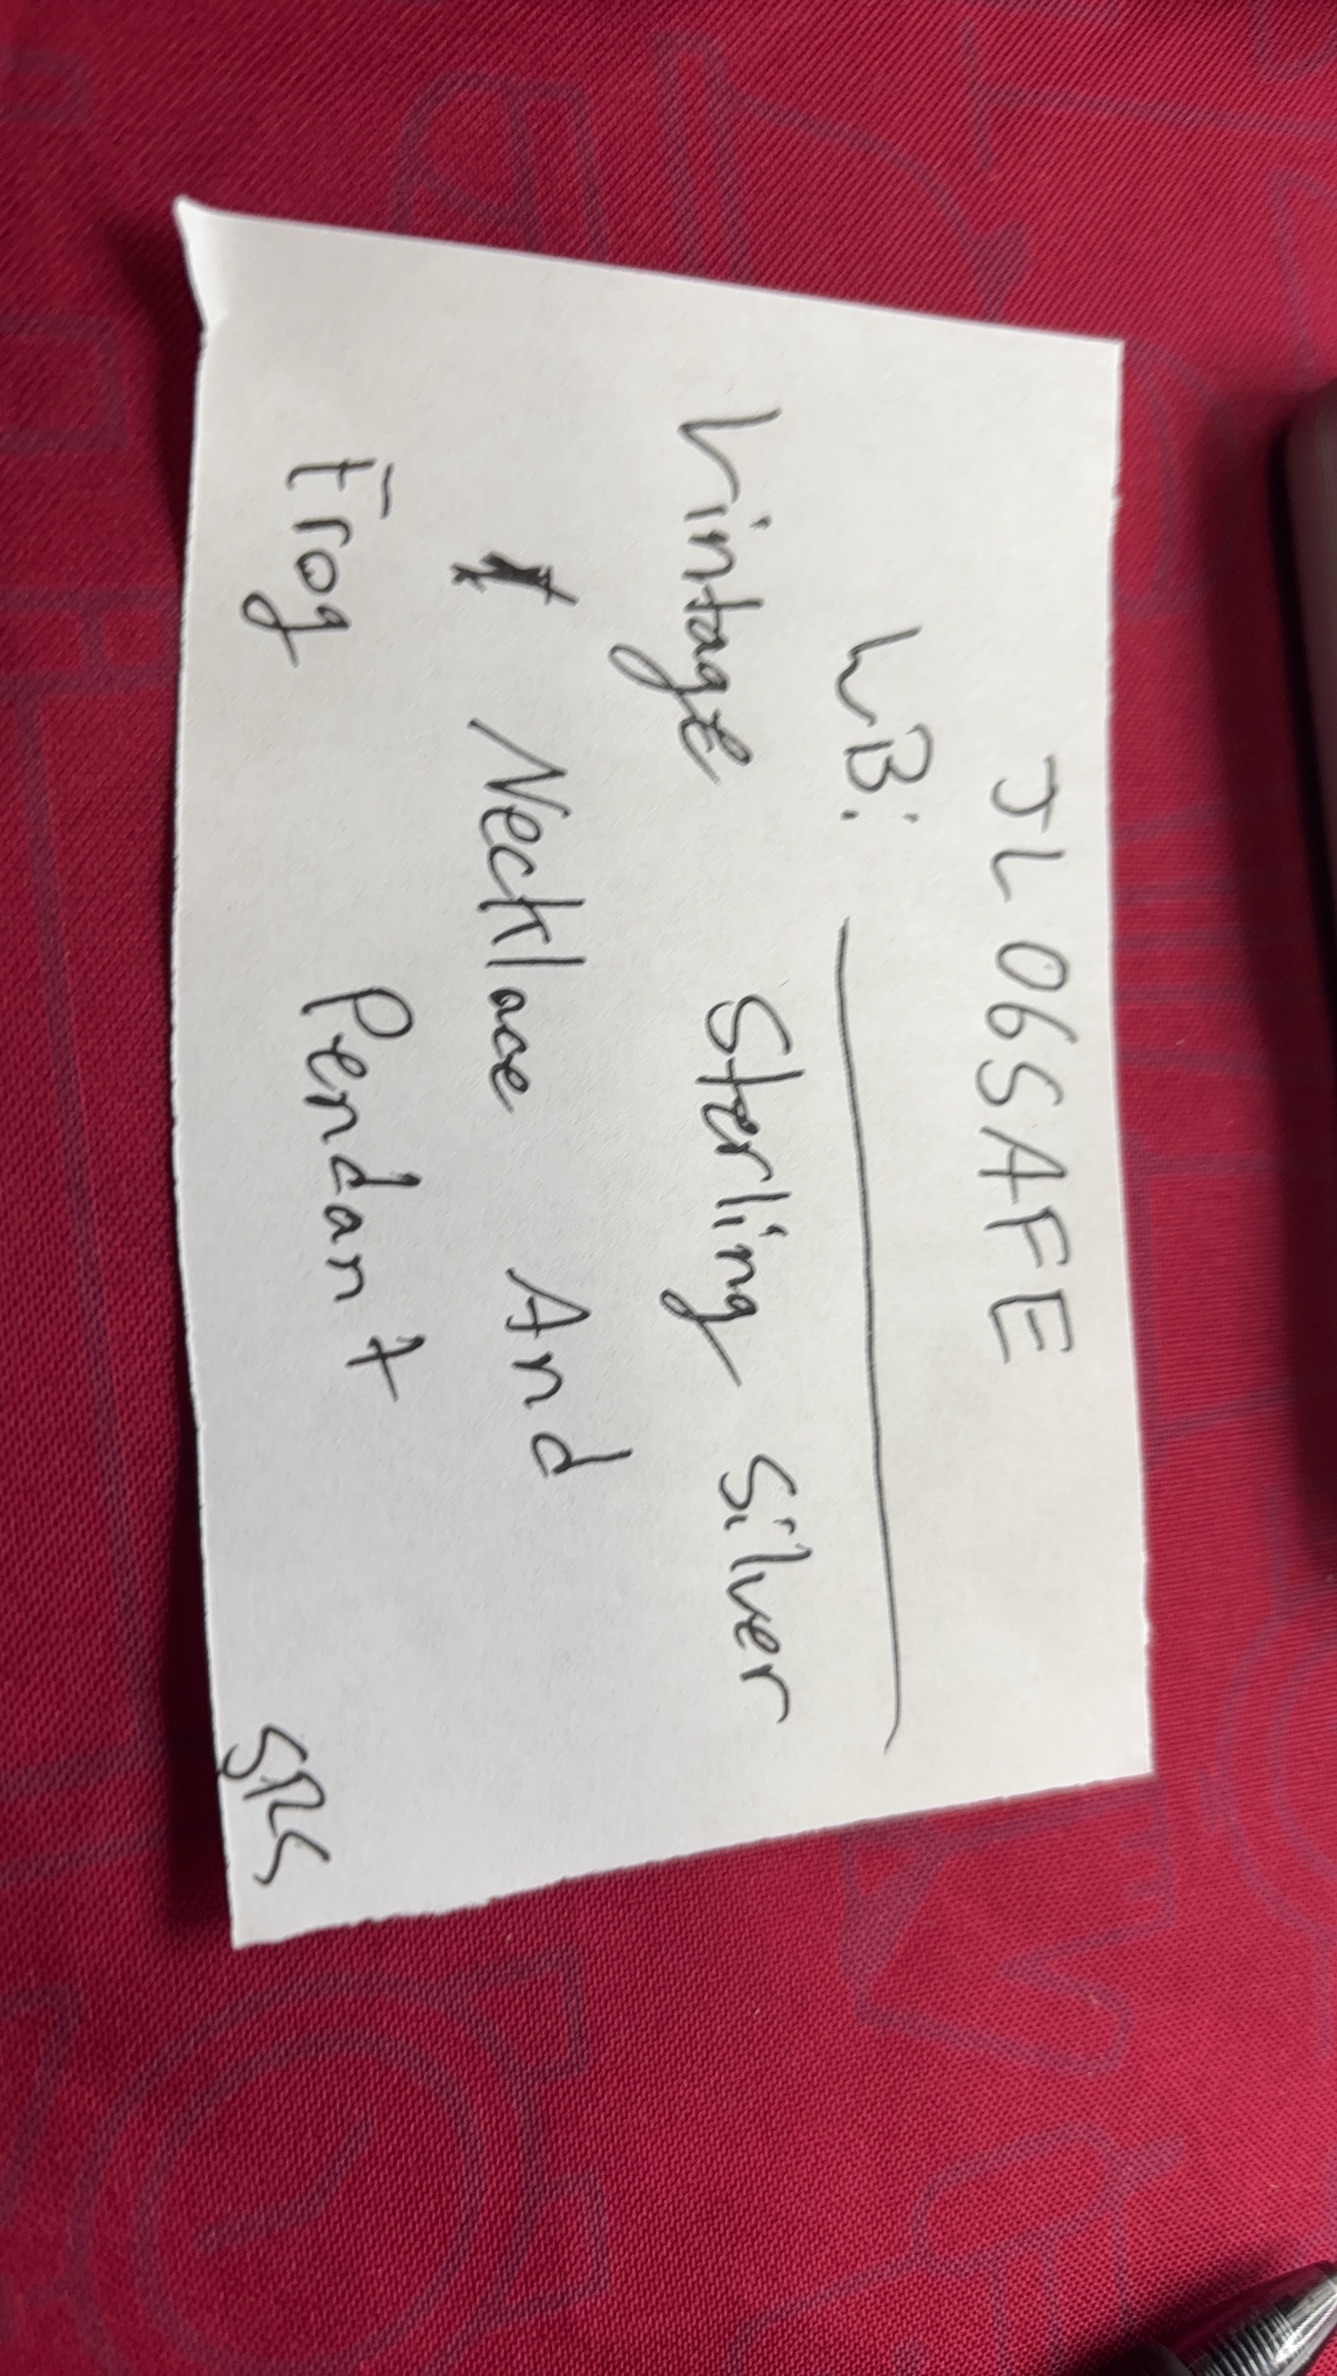 JL06SAFE
WB:
Vintage Sterling Silver
Necklace And
Frog Pendant
SRS